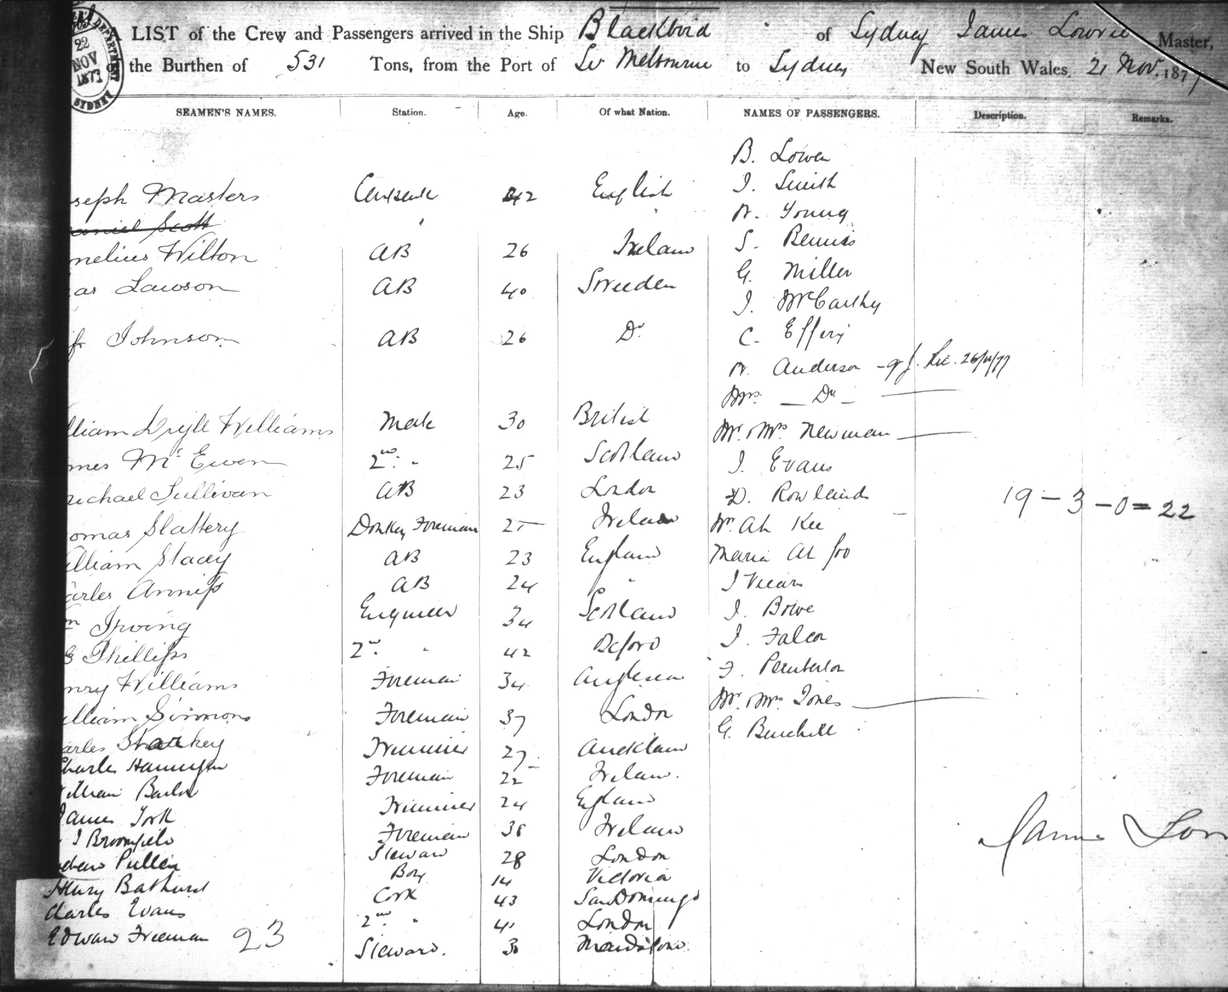 22
NOV
1877
SYDNEY
A LIST of the Crew and Passengers arrived in the Ship Blackbird of Sydney James Lowrie Master,
the Burthen of 531 Tons, from the Port of Melbourne to Sydney New South Wales 21 Nov. 1877
SEAMEN'S NAMES. Station. Age. Of what Nation. NAMES OF PASSENGERS. Description. Remarks.
B. Lowen
seph Masters 42 English J. Smith
aniel Scott " W. Young
nelius Wilton AB 26 Ireland S. Bemiss
as Lawson AB 40 Sweeden G. Miller
J. McCarthy
Johnson AB 26 Do C. Effery
W. Anderson 26/11/77
Mrs — Do —
lliam Wylle Williams Mate 30 British Mr & Mrs Newman
mes McEwen 2nd " 25 Scotland J. Evans
ichael Sullivan AB 23 London D. Rowlands 19 - 3 - 0 = 22
omas Slattery Donkey Foreman 25 Ireland Wm Ah Kee
illiam Stacey AB 23 England Maria Ah foo
arles Anniss AB 24 " J Vicars
m Irving Engineer 34 Scotland J. Bowe
Phillips 2nd " 42 J. Falcon
nry Williams Foreman 34 Anglesea F. Pemberton
illiam Simmons Foreman 37 London Mr & Mrs Jones
arles Starkey Trimmer 27 Auckland G. Burchill
Charles Foreman 22 Ireland.
William Barlow Trimmer 24 England
James York Foreman 38 Ireland James Low
J Broomfield Steward 28 London
ndrew Pullen Boy 14 Victoria
Henry Bathurst Cook 43 San Domingo
Charles Evans 2nd " 41 London
Edward Freeman 23 Steward. 30